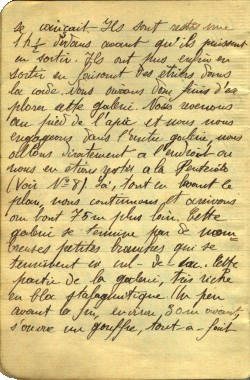 se Ils sont restés une
1 h ½ dedans avant qu'ils puissent
en sortir. Ils ont pu enfin en
sortir en faisant des étriers dans
la corde. Nous avons donc fini d'ex
plorer cette galerie. Nous revenons
au pied de l'à pic et nous nous
engageons dans l'autre galerie, nous
allons directement à l'endroit où
nous en étions restés à la Pentecôte
(Voir N° 8) Là, tout en levant le
plan, nous continuons et arrivons
au bout 75 m plus loin. Cette
galerie se termine par de nom
breuses petites branches qui se
terminent en cul-de-sac. Cette
partie de la galerie, très riche
en bloc stalagmitique. Un peu
avant la fin, environ 30 m avant,
s'ouvre un gouffre, tout-à-fait